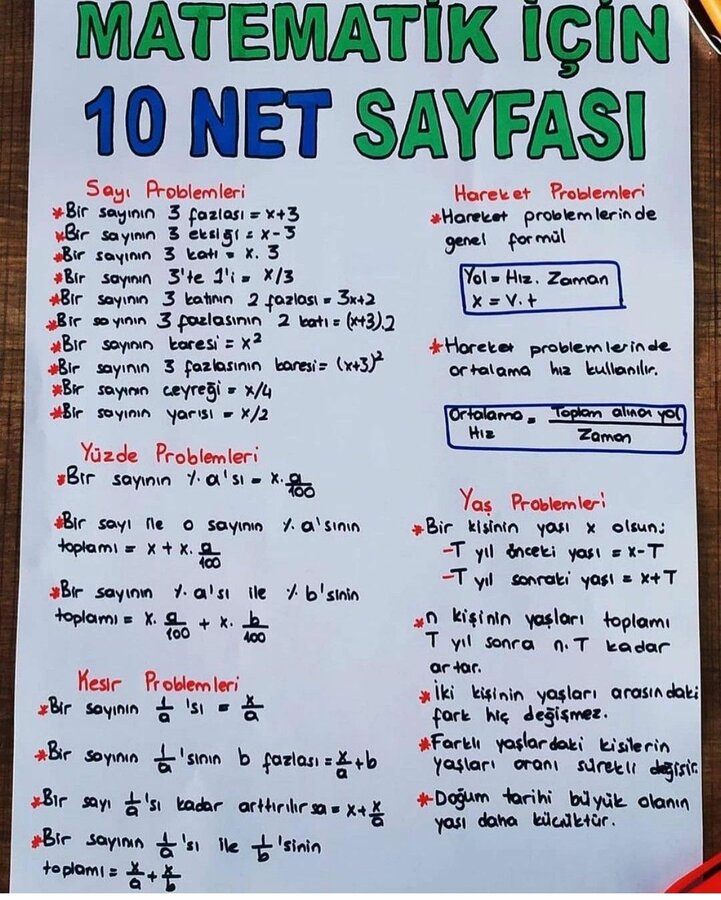 MATEMATİK İÇİN
10 NET SAYFASI
Sayı Problemleri
*Bir sayının 3 fazlası = x+3
*Bir sayının 3 eksiği = x-3
*Bir sayının 3 katı = x. 3
*Bir sayının 3'te 1'i = x/3
*Bir sayının 3 katının 2 fazlası = 3x+2
*Bir sayının 3 fazlasının 2 katı = (x+3).2
*Bir sayının karesi = x²
*Bir sayının 3 fazlasının karesi = (x+3)²
*Bir sayının çeyreği = x/4
*Bir sayının yarısı = x/2
Yüzde Problemleri
*Bir sayının % a'sı = x. a/100
*Bir sayı ile o sayının % a'sının
toplamı = x + x. a/100
*Bir sayının % a'sı ile % b'sinin
toplamı = x. a/100 + x. b/100
Kesir Problemleri
*Bir sayının 1/a 'sı = x/a
*Bir sayının 1/a 'sının b fazlası = x/a + b
*Bir sayı 1/a 'sı kadar arttırılırsa = x + x/a
*Bir sayının 1/a 'sı ile 1/b 'sinin
toplamı = x/a + x/b
Hareket Problemleri
*Hareket problemlerinde
genel formül
Yol = Hız. Zaman
x = v. t
*Hareket problemlerinde
ortalama hız kullanılır.
Ortalama Hız = Toplam alınan yol / Zaman
Yaş Problemleri
*Bir kişinin yaşı x olsun;
-T yıl önceki yaşı = x-T
-T yıl sonraki yaşı = x+T
*n kişinin yaşları toplamı
T yıl sonra n.T kadar
artar.
*İki kişinin yaşları arasındaki
fark hiç değişmez.
*Farklı yaşlardaki kişilerin
yaşları oranı sürekli değişir.
*Doğum tarihi büyük olanın
yaşı daha küçüktür.